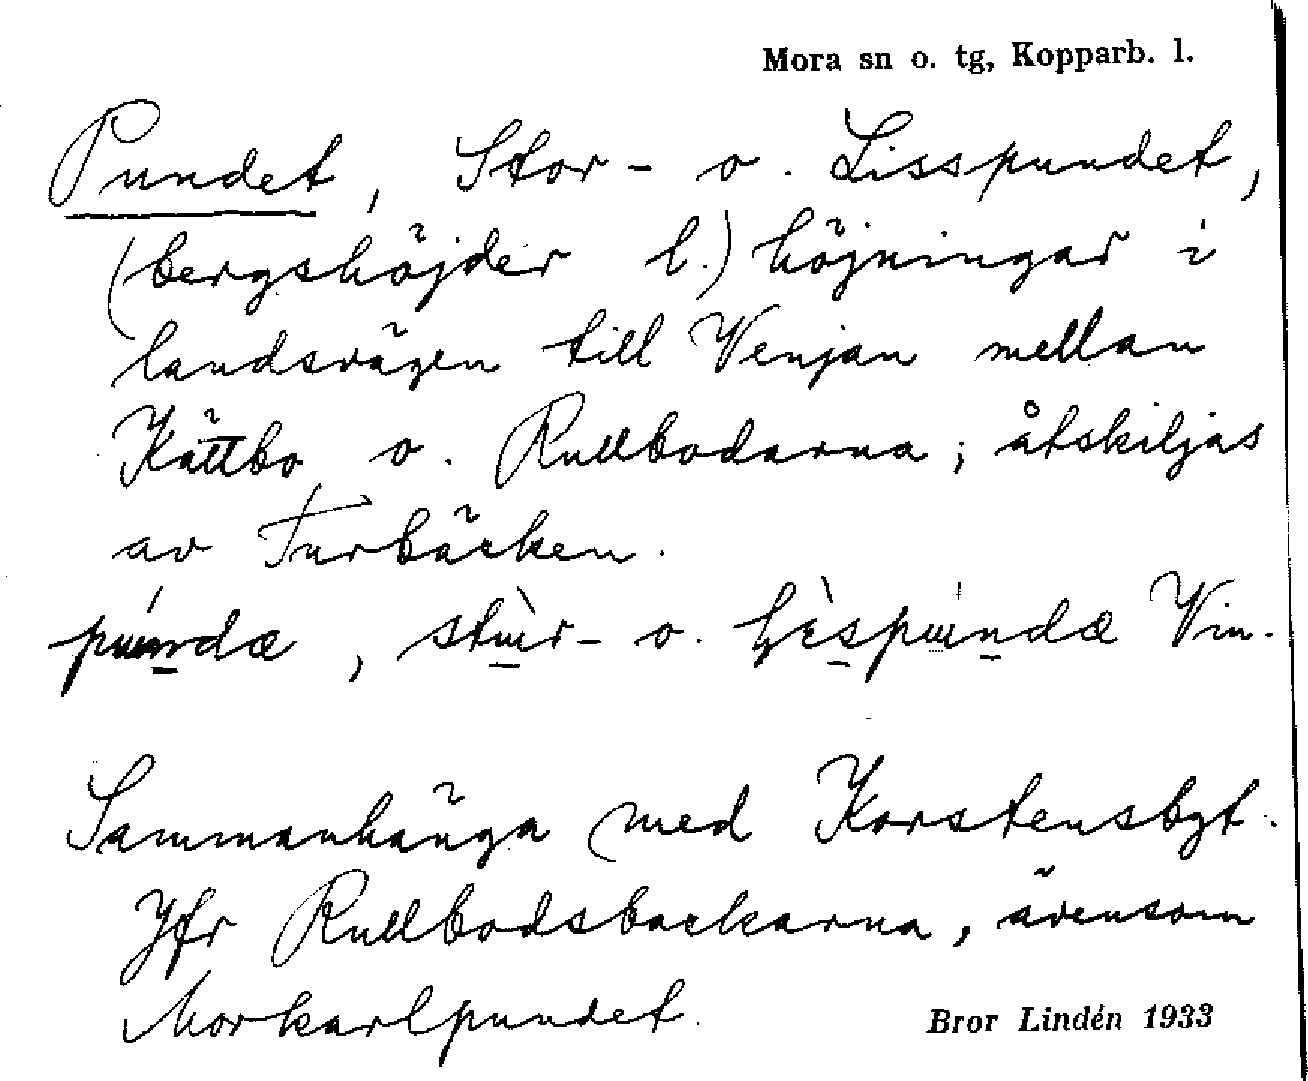 Mora sn o. tg, Kopparb. l.
Pundet, Stor- o. Lisspundet,
(bergshöjder l.) höjningar i
landsvägen till Venjan mellan
Kättbo o. Rullbodarna; åtskiljas
av Turbäcken.
, stùr- o. Vin.
Sammanhänga med Korstensbgt.
Jfr Rullbodsbackarna, ävensom
Morkarlpundet.
Bror Lindén 1933